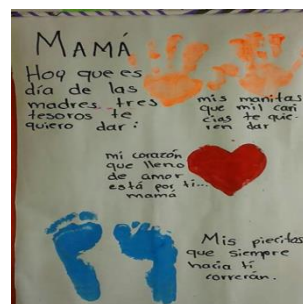 MAMÁ
Hoy que es
día de las
madres tres
tesoros te
quiero dar:
mis manitas
que mil cari
cias te quie-
ren dar
mi corazón
que lleno
de amor
está por ti...
mamá
Mis piecitos
que siempre
hacia ti
correrán.